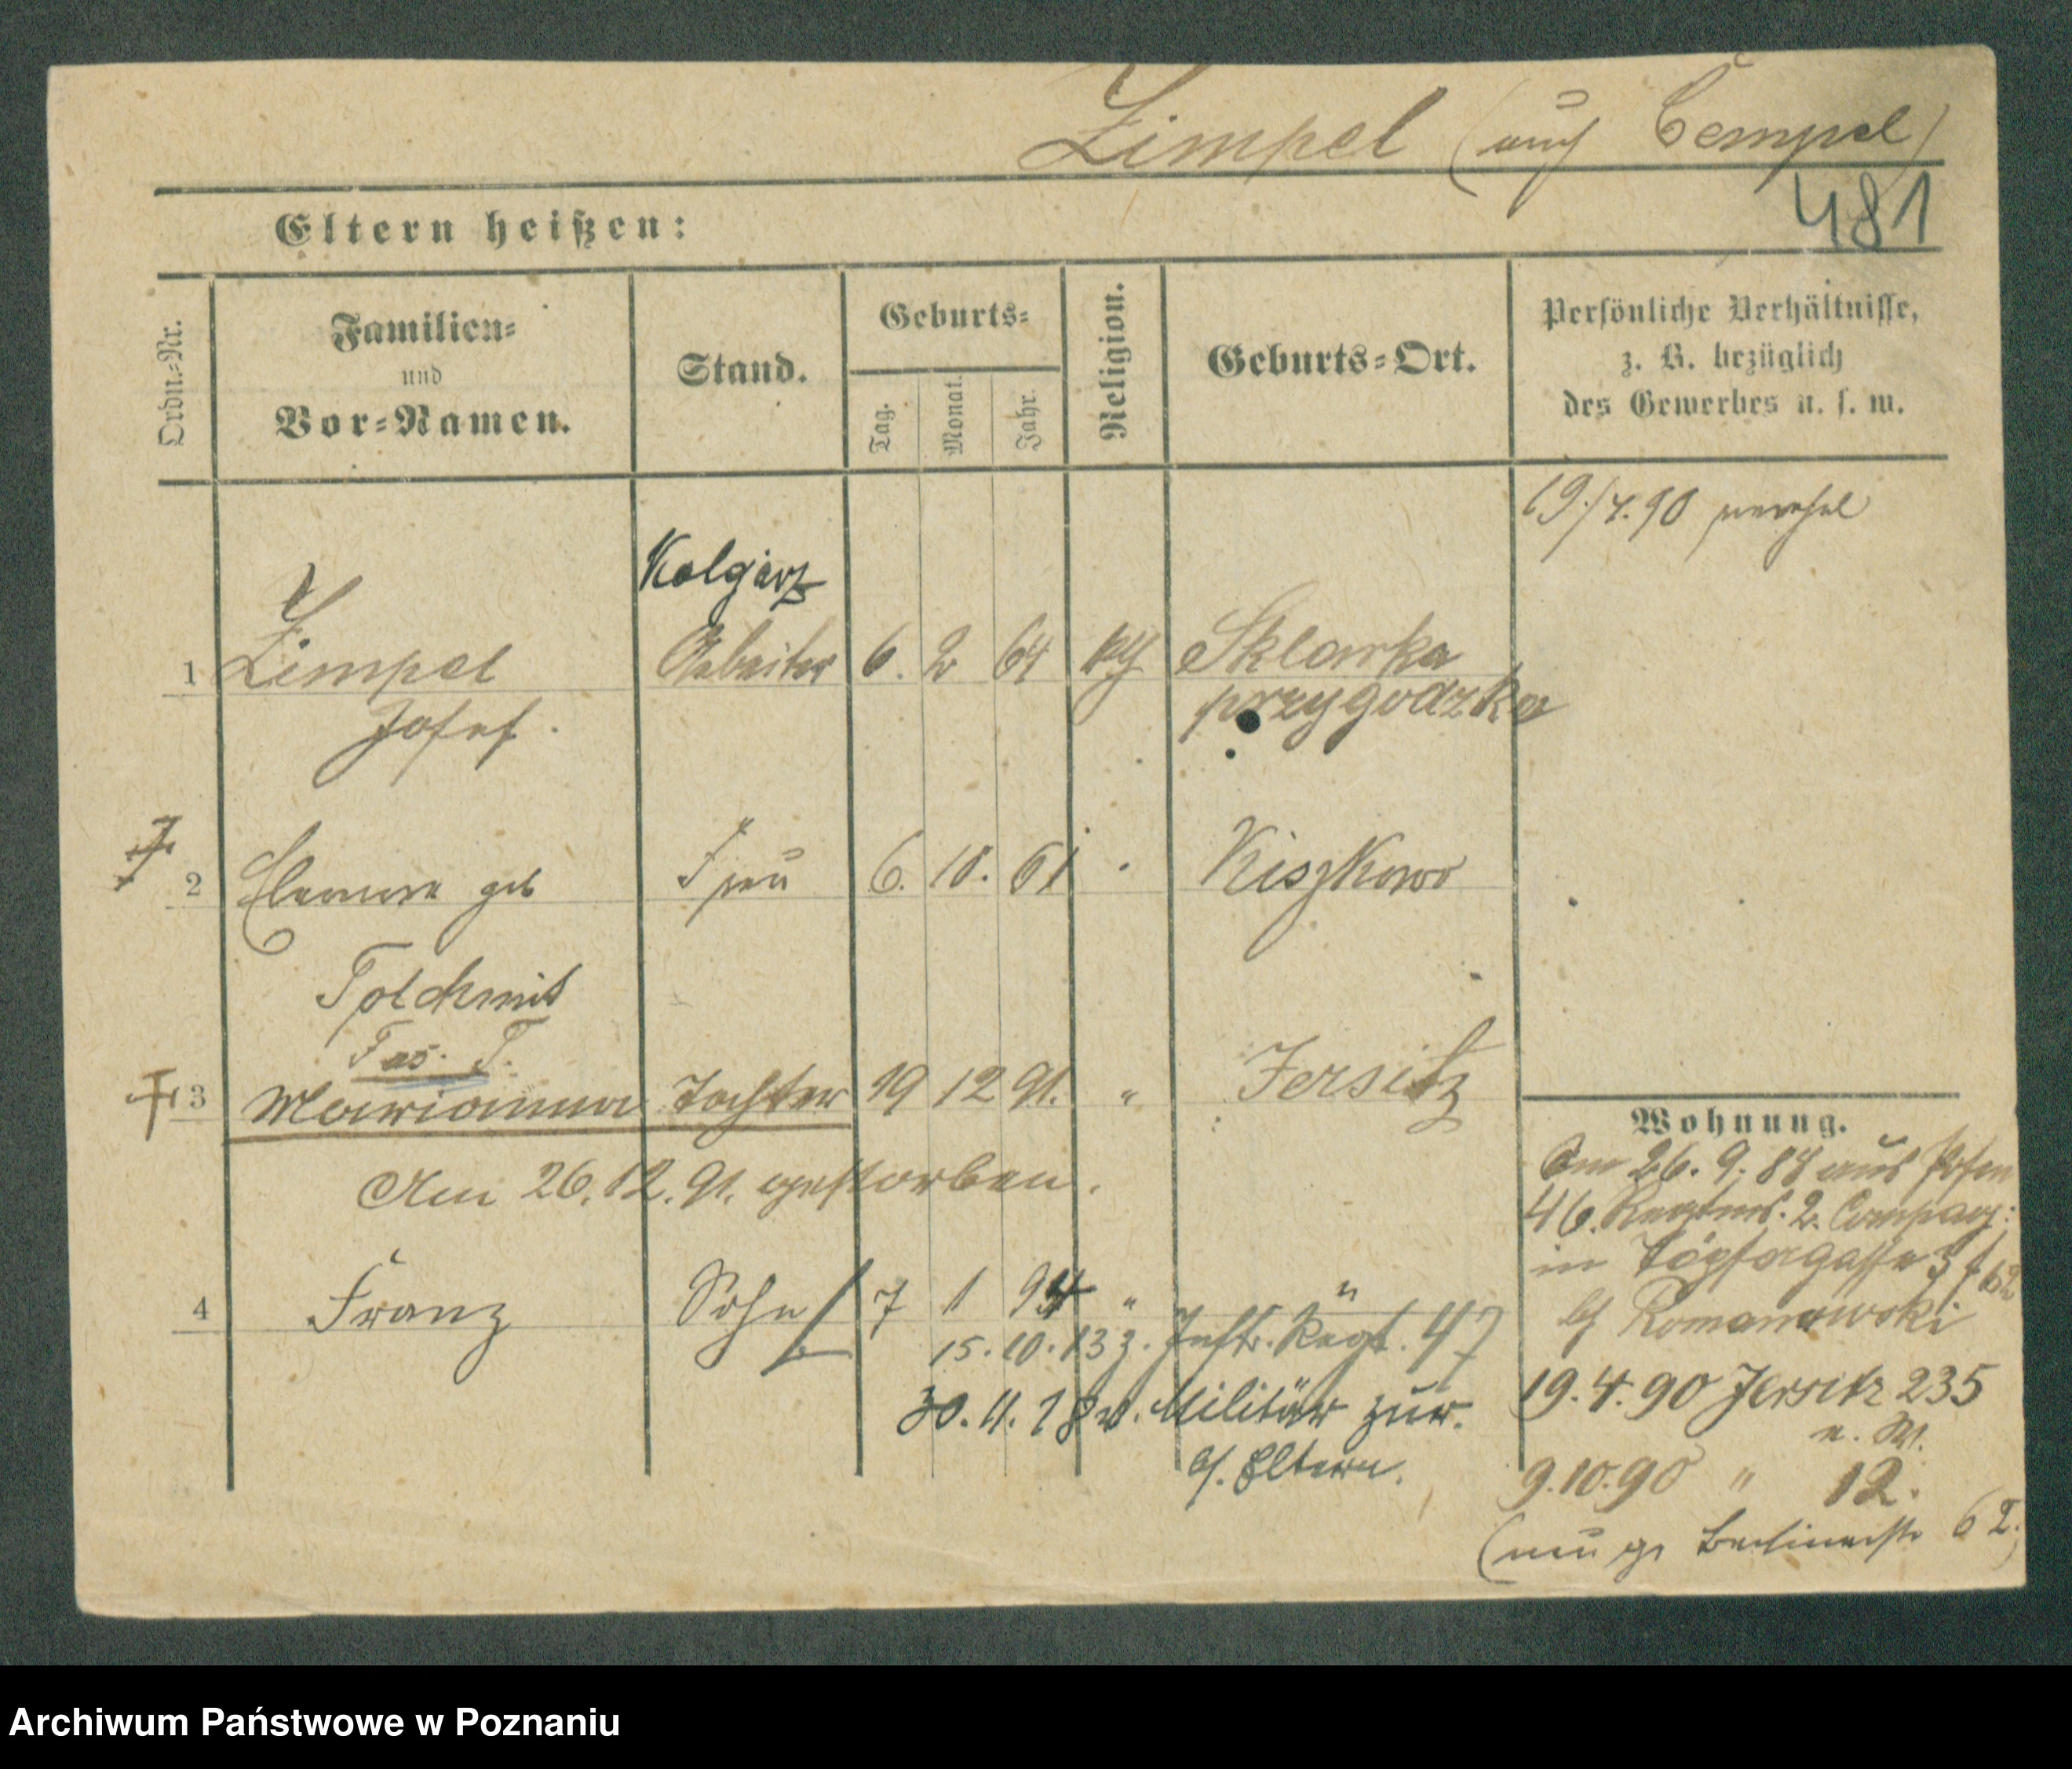 Zimpel (auch Cempel)
481
Eltern heißen:
Ordn.-Nr.
Familien-
und
Vor-Namen.
Stand.
Geburts-
Tag.
Monat.
Jahr.
Religion.
Geburts-Ort.
Persönliche Verhältnisse,
z. B. bezüglich
des Gewerbes u. s. w.
19./4. 90
1 Zimpel Arbeiter 6. 2 64 kth Sklarka
Josef. przygodzka
2 Eleonore geb Frau 6. 10. 61 Kiszkowo
3 Marianna Tochter 19 12 91. " Jersitz
Am 26.12.91. gestorben.
4 Franz Sohn 7 1 94 " "
15.10.13 z. Inftr. Regt. 47
30.11.18 v. Militär zur.
b/. Eltern.
Wohnung.
Am 26. 9. aus Posen
46. Regtms. 2. Compag:
in Töpfergasse 3
b/ Romanowski
19.4.90 Jersitz 235
9.10.90 " 12.
Berlinerstr 62.)
Archiwum Państwowe w Poznaniu